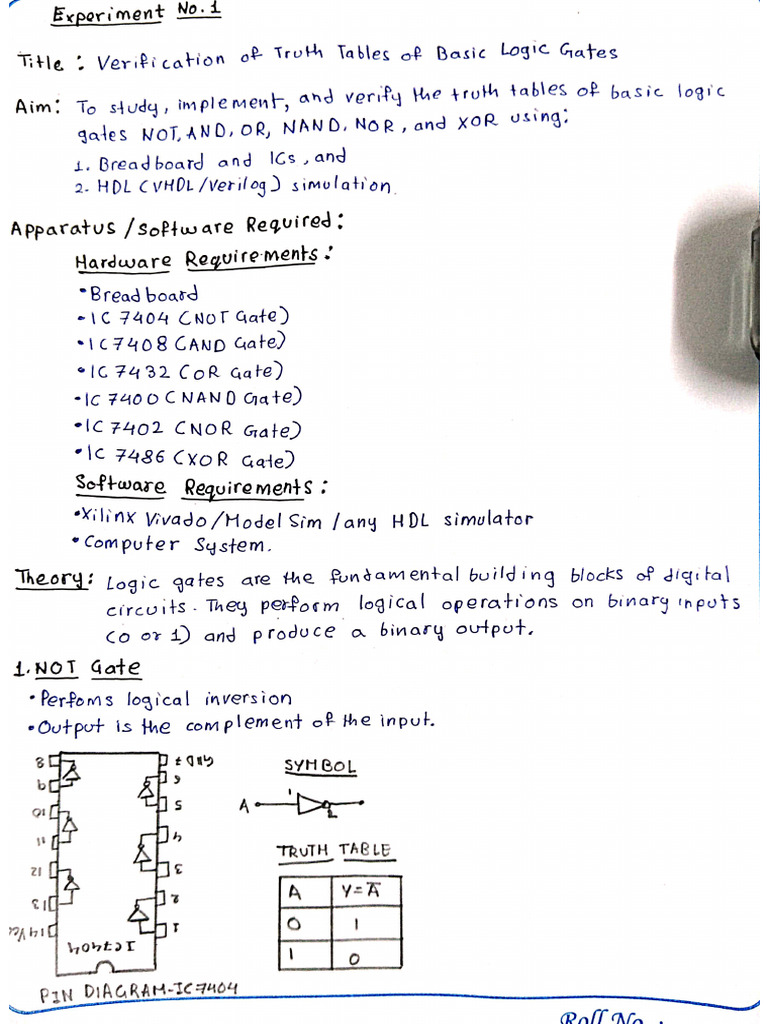 Experiment No. 1
Title : Verification of Truth Tables of Basic Logic Gates
Aim: To study, implement, and verify the truth tables of basic logic
gates NOT, AND, OR, NAND, NOR, and XOR using:
1. Breadboard and ICs, and
2. HDL (VHDL/Verilog) simulation.
Apparatus / Software Required:
Hardware Requirements:
• Breadboard
• IC 7404 (NOT Gate)
• IC 7408 (AND Gate)
• IC 7432 (OR Gate)
• IC 7400 (NAND Gate)
• IC 7402 (NOR Gate)
• IC 7486 (XOR Gate)
Software Requirements:
• Xilinx Vivado/Model Sim /any HDL simulator
• Computer System.
Theory: Logic gates are the fundamental building blocks of digital
circuits. They perform logical operations on binary inputs
(0 or 1) and produce a binary output.
1. NOT Gate
• Perfoms logical inversion
• Output is the complement of the input.
8 GND 7
9 6
10 5
11 4
12 3
13 2
14 Vcc 1
IC7404
PIN DIAGRAM-IC7404
SYMBOL
A 1 2
TRUTH TABLE
A Y=A̅
0 1
1 0
Roll No. :